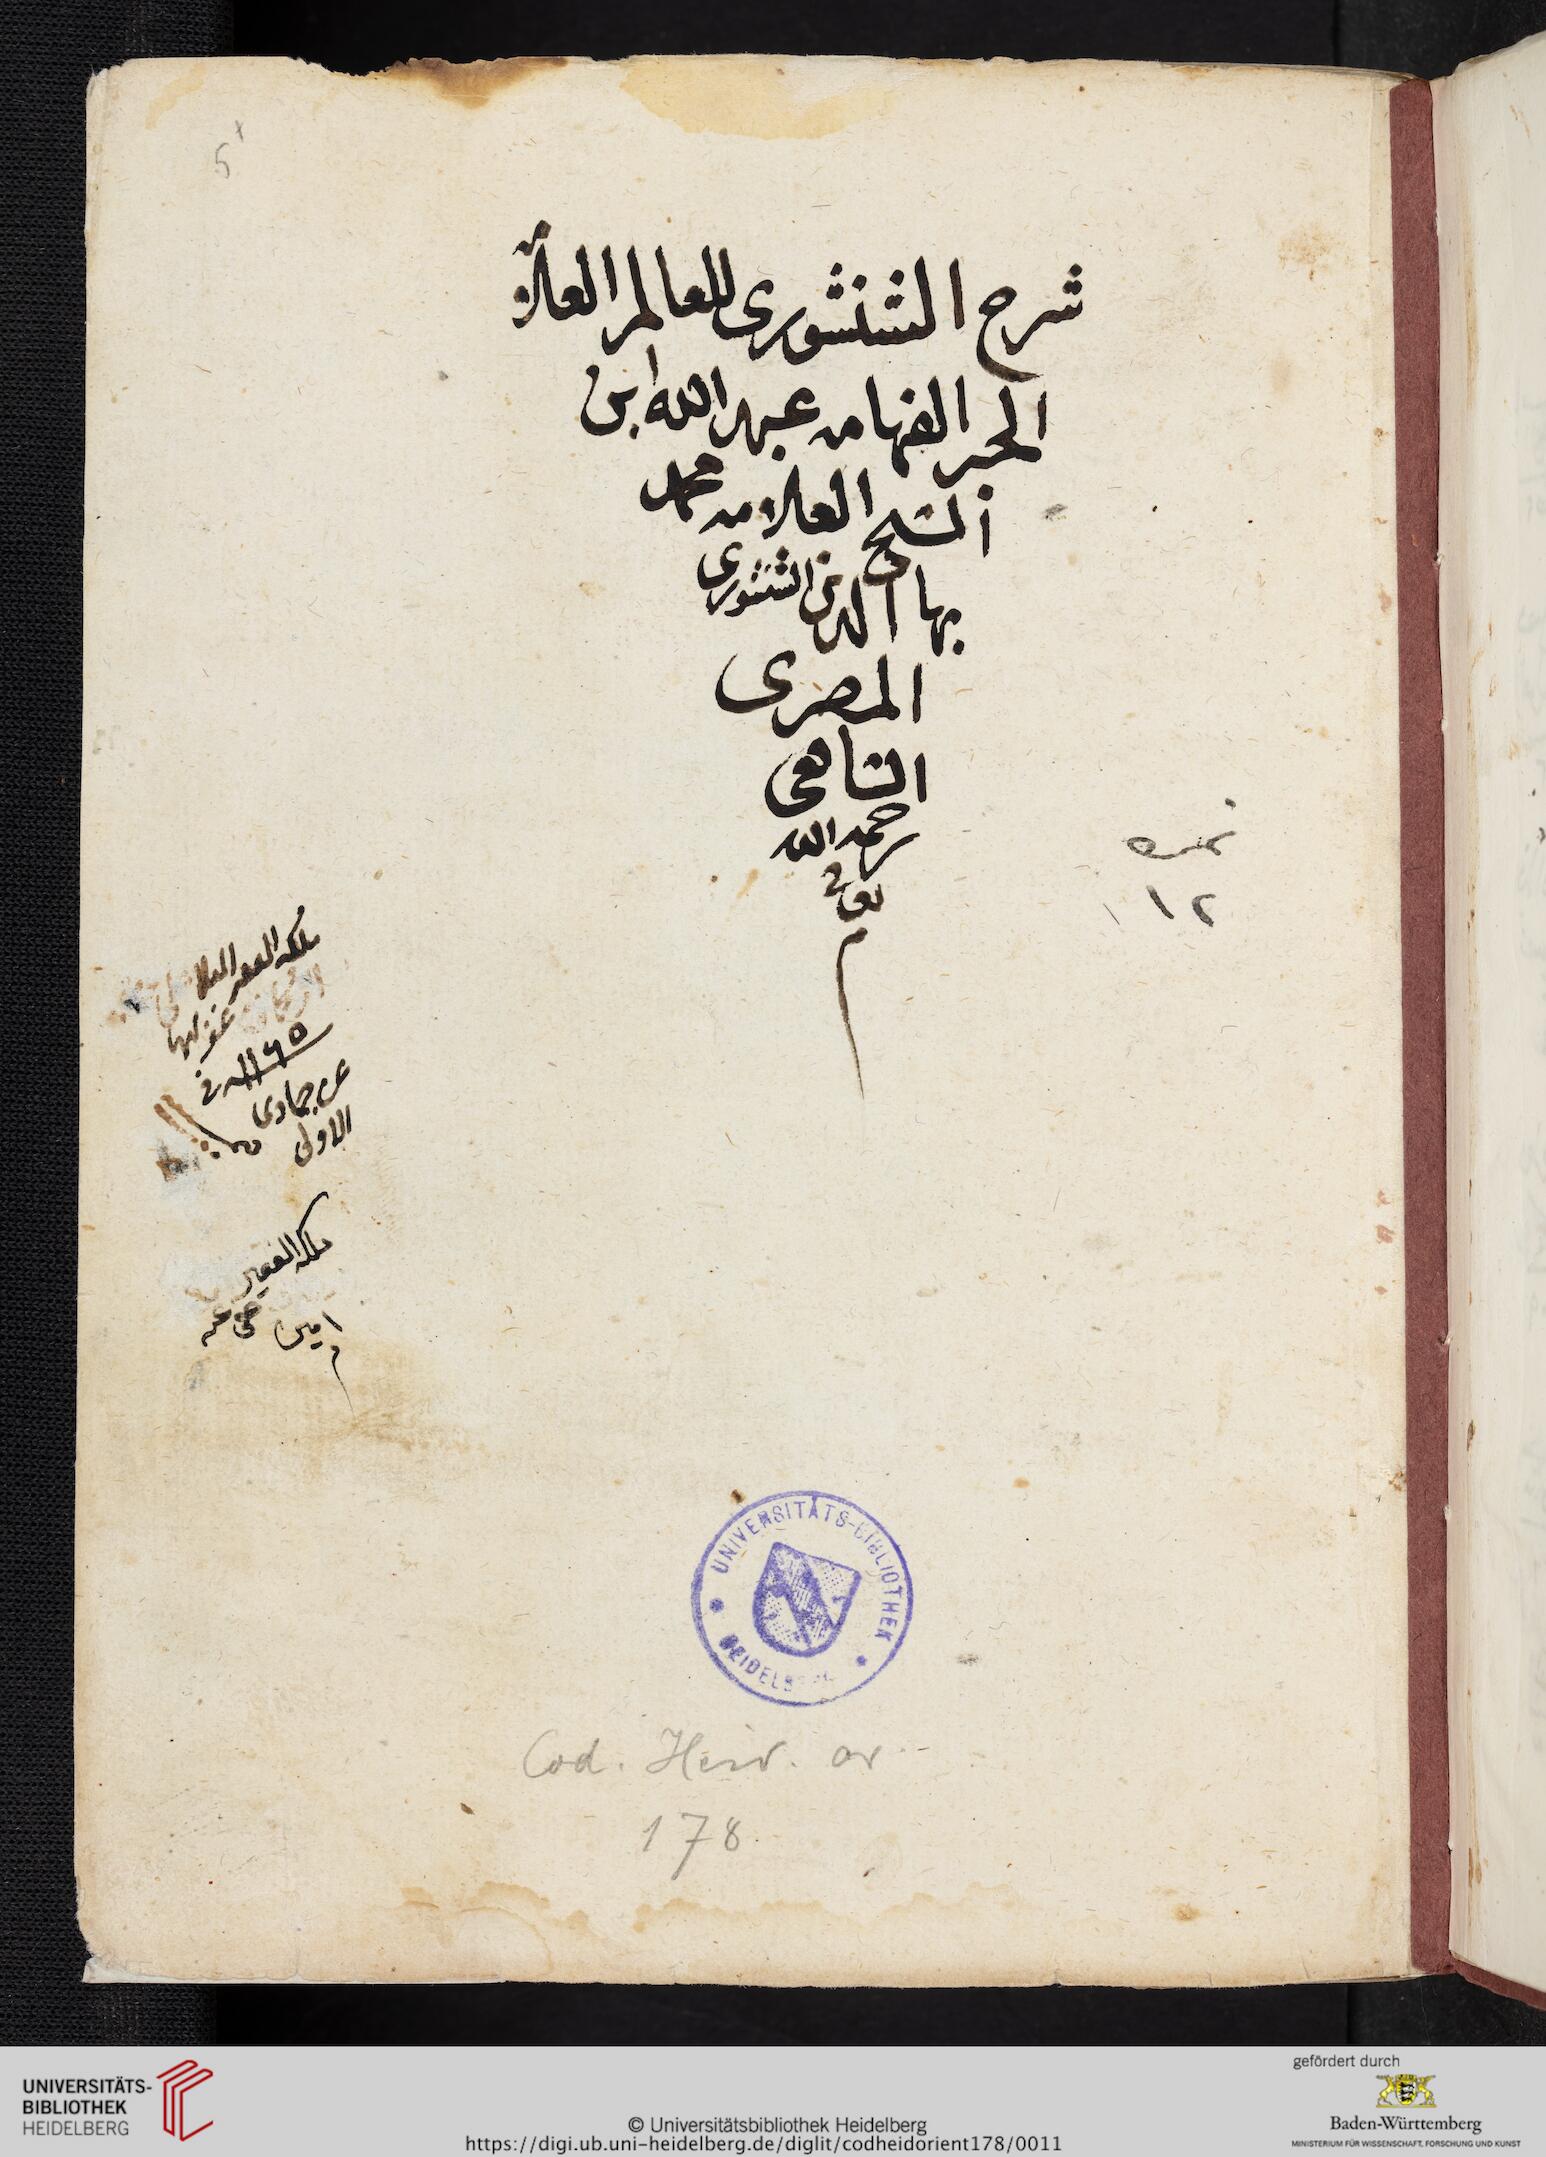 5
شرح الشنشورى للعالم العلامة
الحبر الفهامه عبد الله ابن
الشيخ العلامه محمد
بها الدين الشنشورى
المصرى
الشافعى
رحمه الله
تعالى
م
نمره
١٢
ملكه الفقير
غفر لهما
١١٦٥
جمادى
الاولى
ملكه الفقير
امين عفى عنه
م
UNIVERSITÄTS-BIBLIOTHEK
HEIDELBERG
Cod. Heid. or.
178
UNIVERSITÄTS-
BIBLIOTHEK
HEIDELBERG
© Universitätsbibliothek Heidelberg
https://digi.ub.uni-heidelberg.de/diglit/codheidorient178/0011
gefördert durch
Baden-Württemberg
MINISTERIUM FÜR WISSENSCHAFT, FORSCHUNG UND KUNST